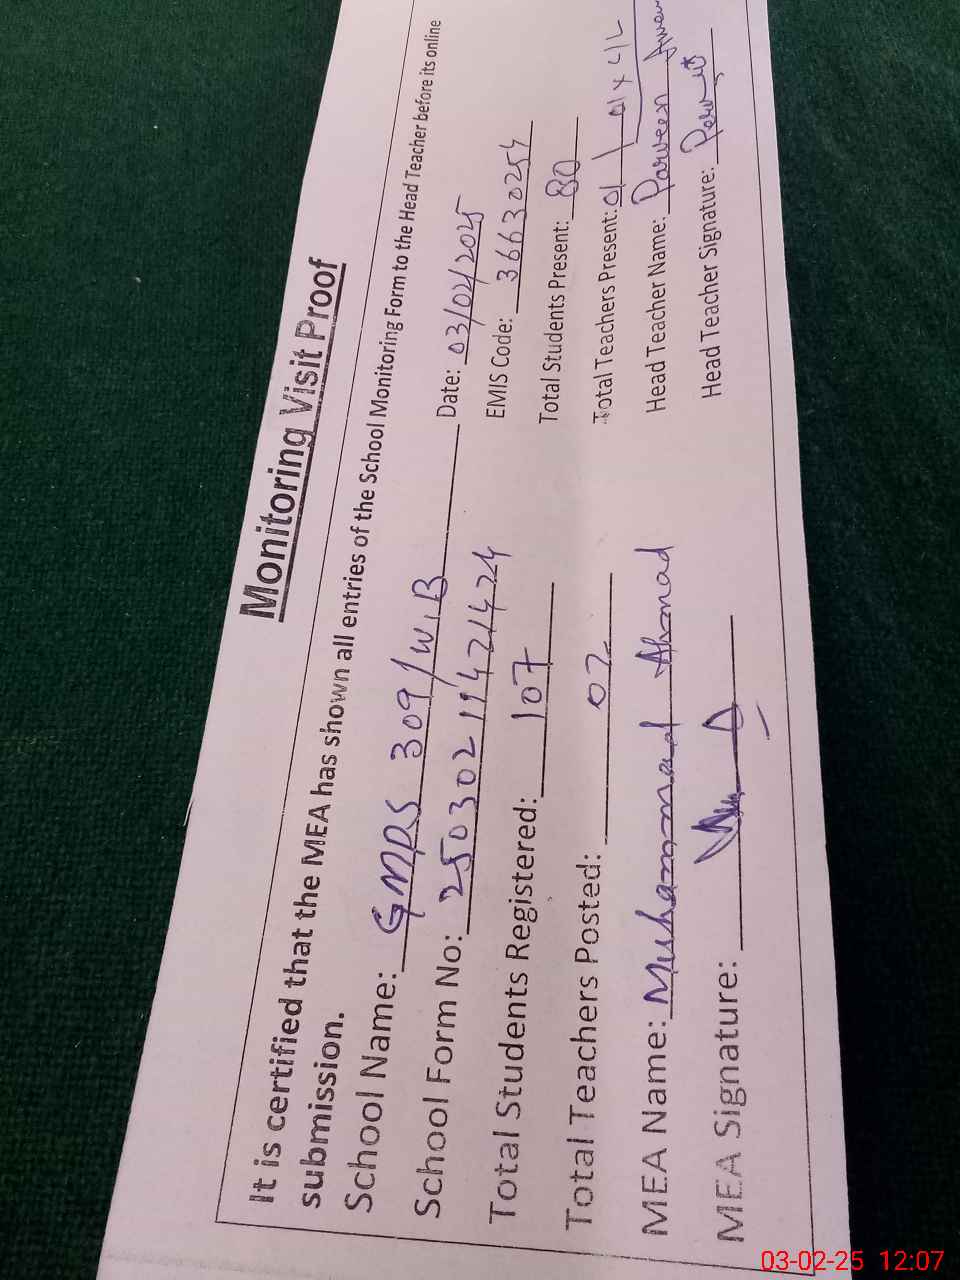 Monitoring Visit Proof
It is certified that the MEA has shown all entries of the School Monitoring Form to the Head Teacher before its online
submission.
School Name: GMPS 309/W.B Date: 03/02/2025
School Form No: 250302114721424 EMIS Code: 36630254
Total Students Registered: 107 Total Students Present: 80
Total Teachers Posted: 02 Total Teachers Present: 01 01 x C/L
MEA Name: Muhammad Ahmad Head Teacher Name: Parveen
MEA Signature: Head Teacher Signature:
03-02-25 12:07